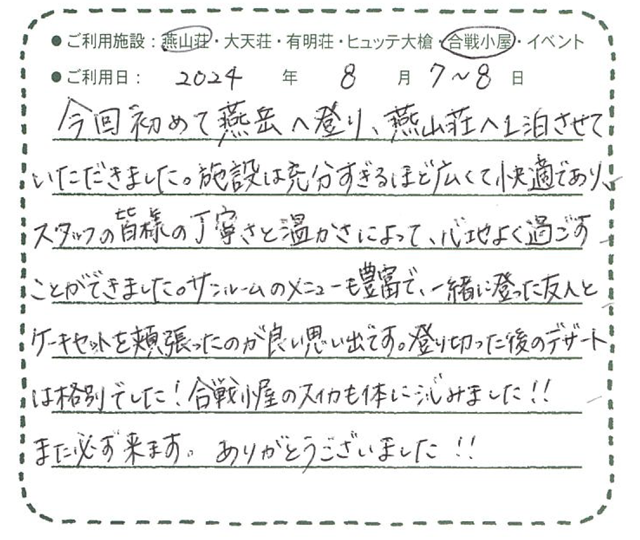 ●ご利用施設：燕山荘・大天荘・有明荘・ヒュッテ大槍・合戦小屋・イベント
●ご利用日： 2024 年 8 月 7～8 日
今回初めて燕岳へ登り、燕山荘へ1泊させて
いただきました。施設は充分すぎるほど広くて快適であり、
スタッフの皆様の丁寧さと温かさによって、心地よく過ごす
ことができました。サンルームのメニューも豊富で、一緒に登った友人と
ケーキセットを頬張ったのが良い思い出です。登り切った後のデザート
は格別でした！合戦小屋のスイカも体に沁みました！！
また必ず来ます。ありがとうございました！！